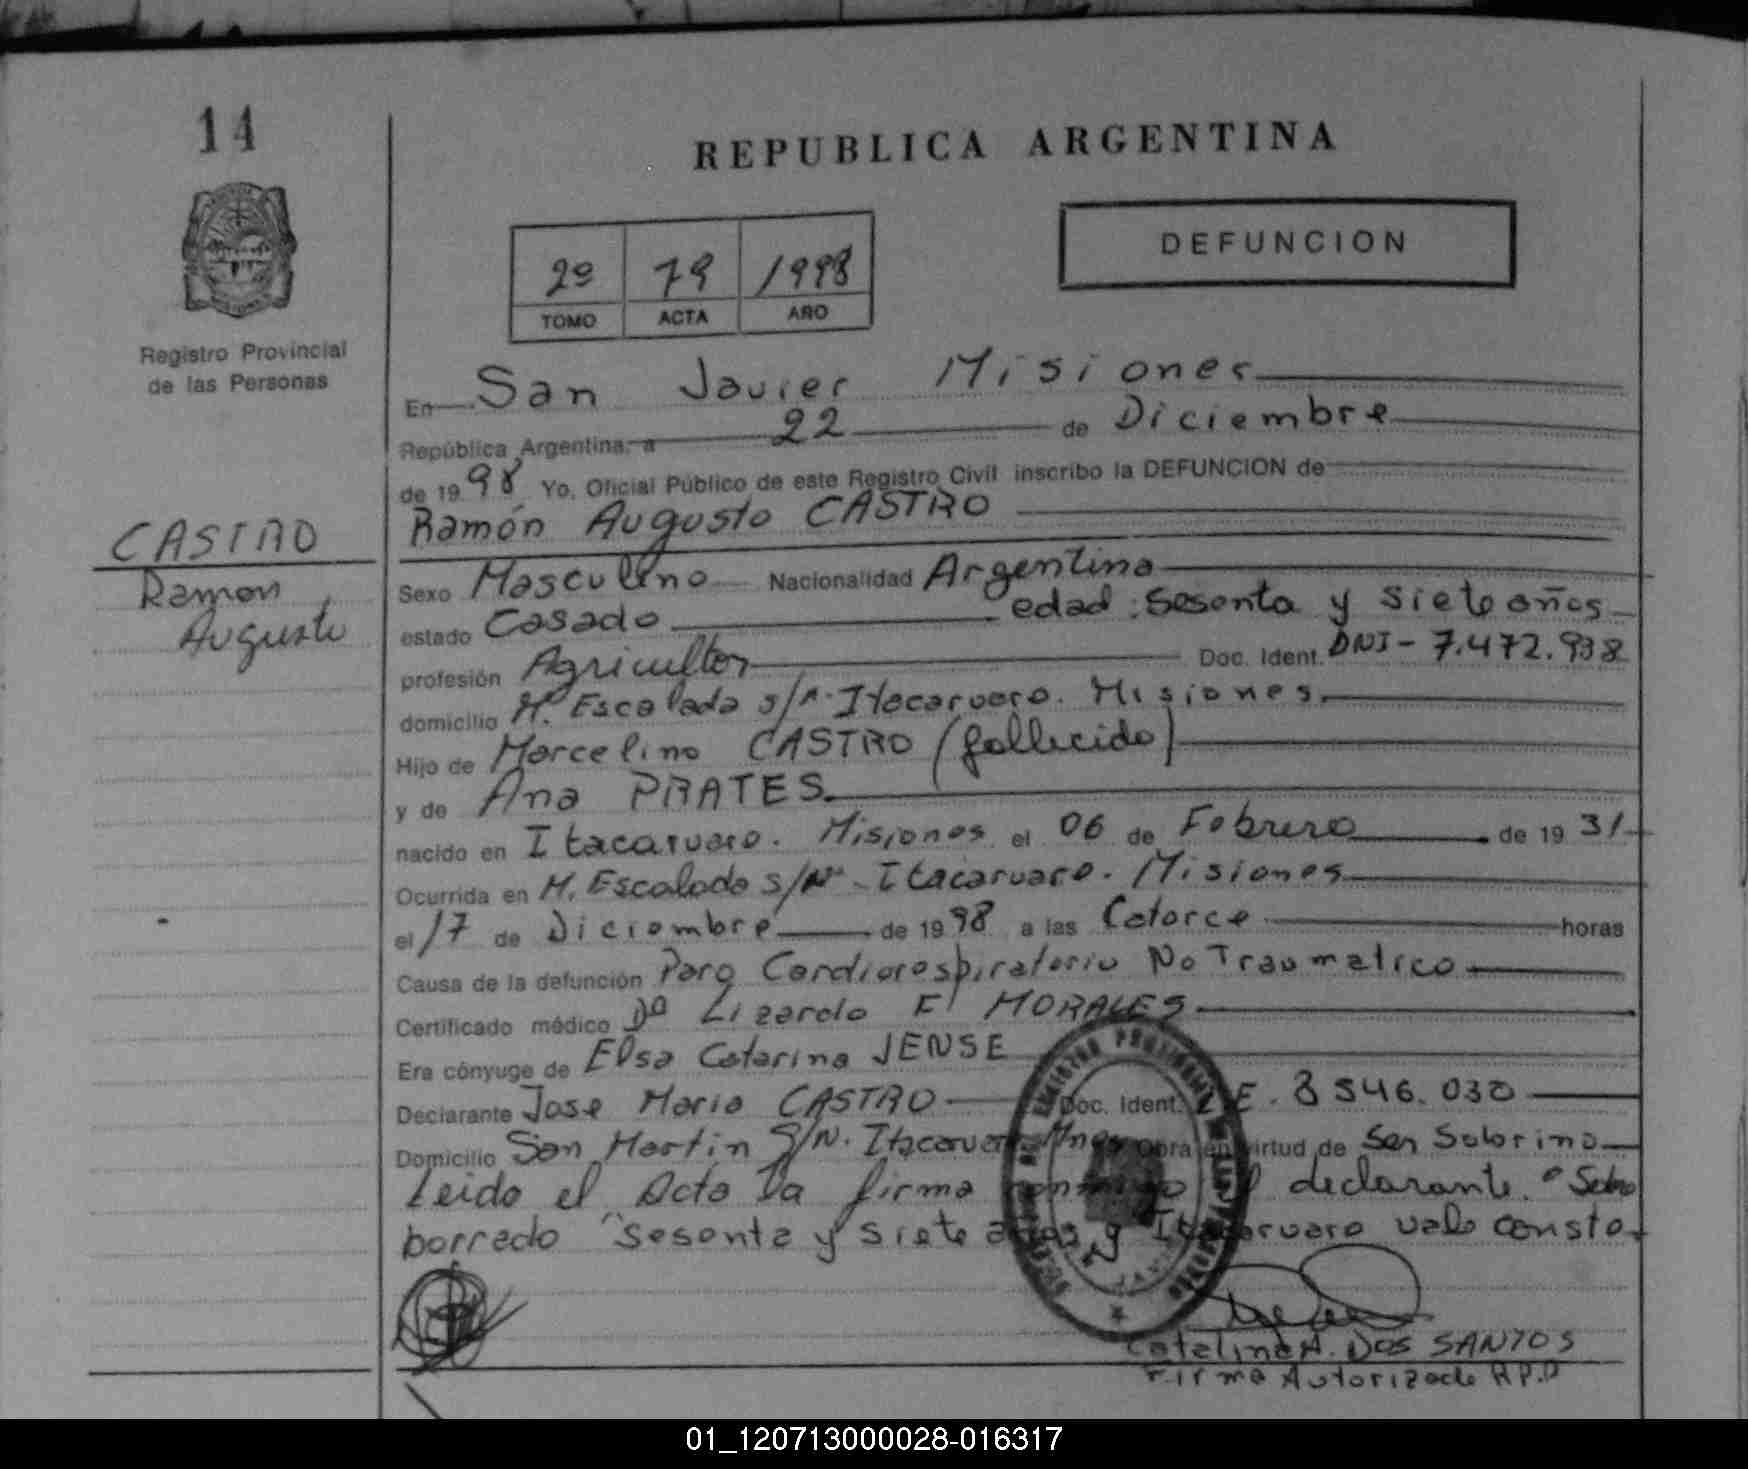 14
REPUBLICA ARGENTINA
DEFUNCION
2º 79 1998
TOMO ACTA AÑO
Registro Provincial
de las Personas
En San Javier Misiones
República Argentina, a 22 de Diciembre
de 1998 Yo, Oficial Público de este Registro Civil inscribo la DEFUNCION de
Ramón Augusto CASTRO
CASTRO
Ramon
Augusto
Sexo Masculino Nacionalidad Argentina
estado Casado edad: Sesenta y Siete años
profesión Agricultor Doc. Ident. DNI - 7.472.938
domicilio M. Escalada s/n. Itacaruaro. Misiones
Hijo de Marcelino CASTRO (fallecido)
y de Ana PRATES
nacido en Itacaruaro. Misiones el 06 de Febrero de 1931
Ocurrida en M. Escalada s/Nº - Itacaruaro. Misiones
el 17 de Diciembre de 1998 a las Catorce horas
Causa de la defunción Paro Cardiorespiratorio No Traumatico
Certificado médico Lizardo F MORALES
Era cónyuge de Elsa Catarina JENSE
Declarante Jose Maria CASTRO Doc. Ident. E. 8546.030
Domicilio San Martin S/N. Itacaruaro Mnes Obra en virtud de
Leido el Acta la firma conmigo el declarante. Sobre
borrado "Sesenta y Siete años y Itacaruaro vale consta.
Catalina A. DOS SANTOS
Firma Autorizada R.P.P
01_120713000028-016317